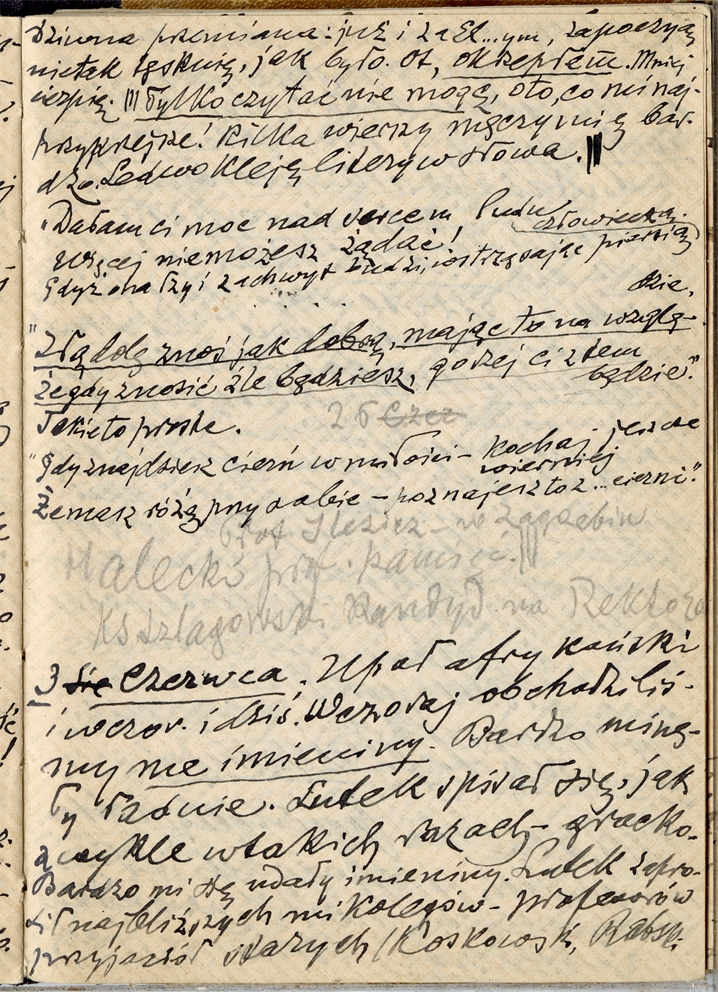 Dziwna przemiana: już i za El...ym, zapoczyną
nietak tęsknię, jak było. Ot, okrzepłem. Mniej
cierpię. Tylko czytać nie mogę, oto, co mi naj-
przykrejsze! Kilka wierszy męczy mię bar-
dzo. Ledwo kleję litery w słowa.
"Dałam ci moc nad sercem ludu
człowieka.
więcej niemożesz żądać!
Gdyż ona łzy i zachwyt budzi, wstrząsając piersią
"Złą dolę znoś jak dobrą, mając to na wzglę-
dzie,
Że gdy znosić źle będziesz, gorzej ci z tem
będzie."
Takie to proste.
26 Czer
"Gdy znajdziesz cierń w miłości - kochaj jeszcze
wierniej
Że masz różę przy sobie - poznajesz to z... cierni."
prof w Zagrzebiu
Malecki prof. pamięć.
Ks Szlagowski Kandyd na Rektora
3 Czerwca. Upał afrykański
i wczor. i dziś. Wczoraj obchodziliś-
my me imieniny. Bardzo minę-
ły ładnie. Lutek spisał się, jak
zwykle w takich razach - gracko.
Bardzo mi się udały imieniny. Lutek zapro-
sił najbliższych mi kolegów - profesorów
przyjaciół starych (Koskowski, Rabski